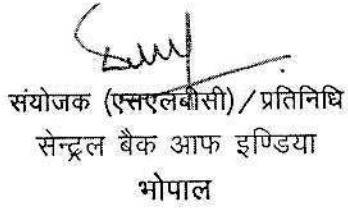 संयोजक (एसएलबीसी) / प्रतिनिधि
सेन्ट्रल बैक आफ इण्डिया
भोपाल